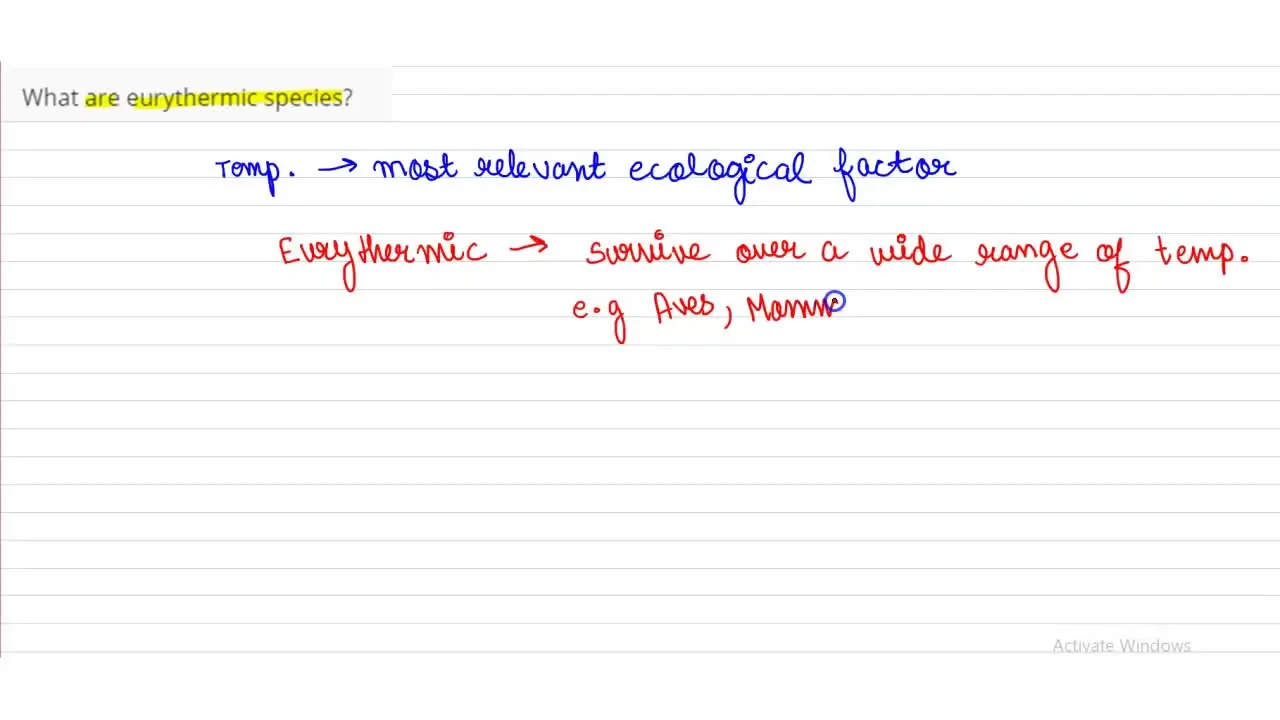 What are eurythermic species?
Temp. → most relevant ecological factor
Eurythermic → survive over a wide range of temp.
e.g Aves, Mamm
Activate Windows